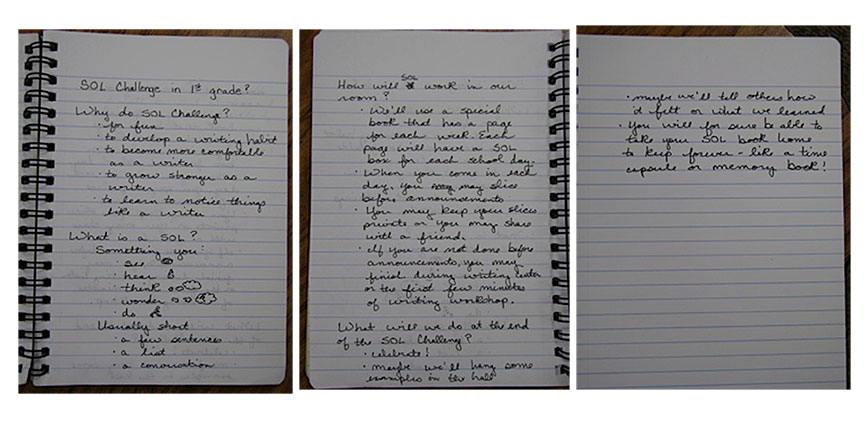 SOL Challenge in 1st grade?
Why do SOL Challenge?
· for fun
· to develop a writing habit
· to become more comfortable
as a writer
· to grow stronger as a
writer
· to learn to notice things
like a writer
What is a SOL?
Something you:
· see
· hear
· think
· wonder
· do
Usually short
· a few sentences
· a list
· a conversation
How will SOL work in our
room?
· We'll use a special
book that has a page
for each week. Each
page will have a SOL
box for each school day.
· When you come in each
day, you may slice
before announcements
· You may keep your slices
private or you may share
with a friend.
· If you are not done before
announcements, you may
finish during writing center
or the first few minutes
of writing workshop.
What will we do at the end
of the SOL Challeng?
· celebrate!
· maybe we'll hang some
examples in the hall
· maybe we'll tell others how
it felt or what we learned
· You will for sure be able to
take your SOL book home
to keep forever - like a time
capsule or memory book!